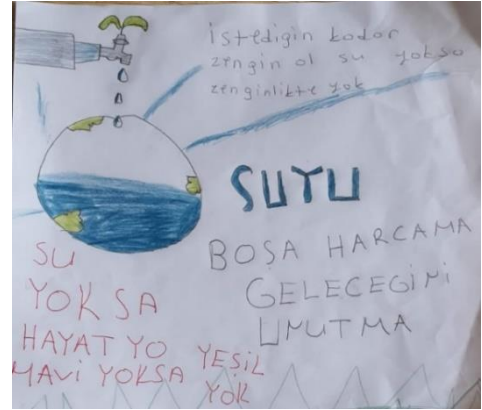 istediğin kadar
zengin ol su yoksa
zenginlikte yok
SUYU
BOŞA HARCAMA
GELECEGiNi
UNUTMA
SU
YOKSA
HAYAT YO
MAVi YOKSA YEŞiL
YOK